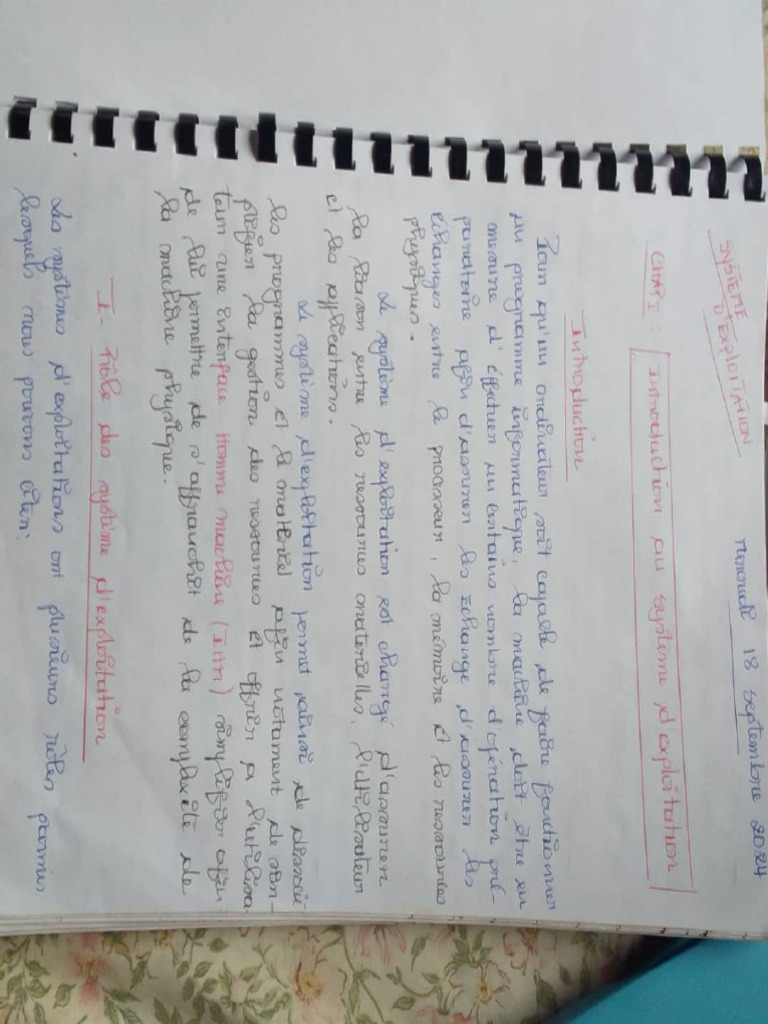 SYSTEME
D'EXPLOITATION
mercredi 18 septembre 2024
CHAP I : Introduction au système d'exploitation
Introduction
Pour qu'un ordinateur soit capable de faire fonctionner
un programme informatique, la machine doit être en
mesure d'éffectuer un certains nombre d'opération pré-
paratoire afin d'assurer les échange d'assurer les
échanges entre le processeur, la mémoire et les ressources
physiques.
Le système d'exploitation est chargé d'assurer
la liaison entre les ressources materielles, l'utilisateur
et les applications.
Le système d'exploitation permet ainsi de dissoci-
les programmes et le matériel afin notament de sim-
plifier la gestion des ressources et offrir a l'utilisa
teur une interface Homme machine (IHM) simplifiée afin
de lui permettre de s'affranchit de la complexité de
la machine physique.
I- Rôle des système d'exploitation
Les systèmes d'exploitations ont plusieurs rôles parmis
lesquels nous pouvons citer: